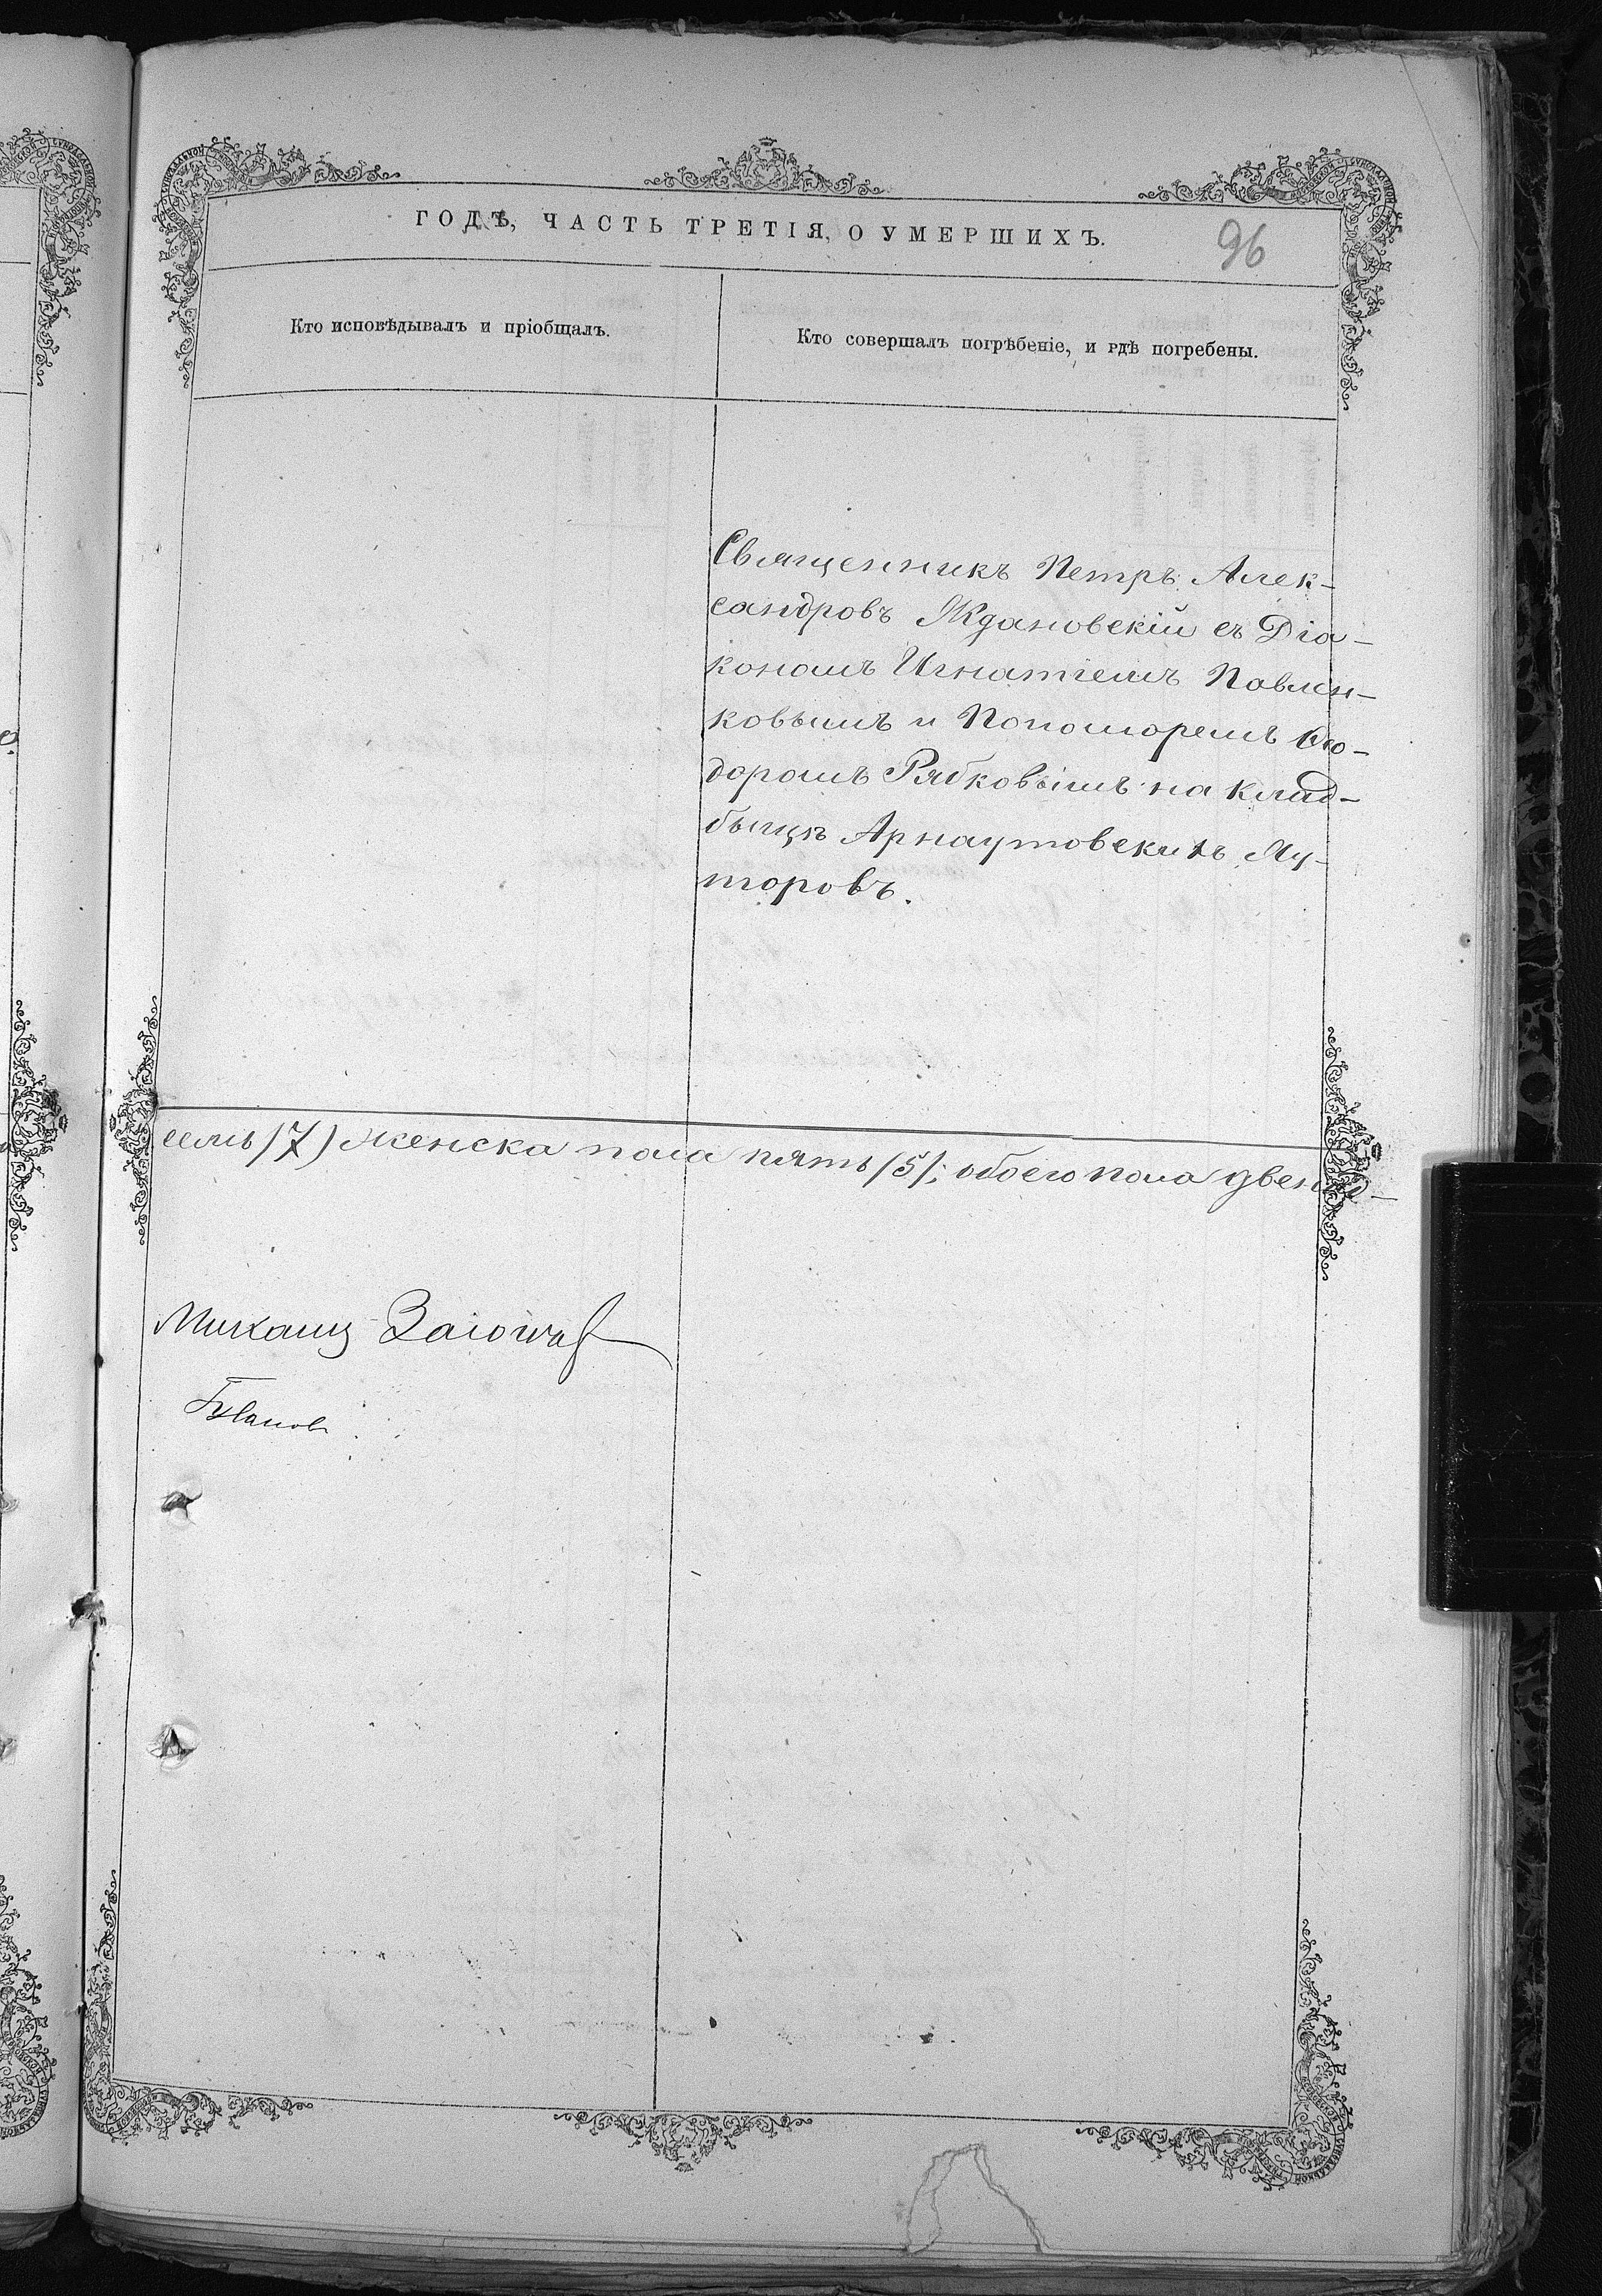 ГОДѢ, ЧАСТЬ ТРЕТІЯ, О УМЕРШИХЪ.
96
Кто исповѣдывалъ и пріобщалъ.
Кто совершалъ погрѣбеніе, и гдѣ погребены.
Священникъ Петръ Алек-
сандровъ Ждановскій съ Діа-
кономъ Игнатіемъ Павлен-
ковымъ и Пономоремъ Ѳео-
доромъ Рябковымъ на клад-
быщѣ Арнаутовскихъ Ху-
торовъ.
семь (7) женска пола пять (5); обоего пола двенад-
Михаилъ